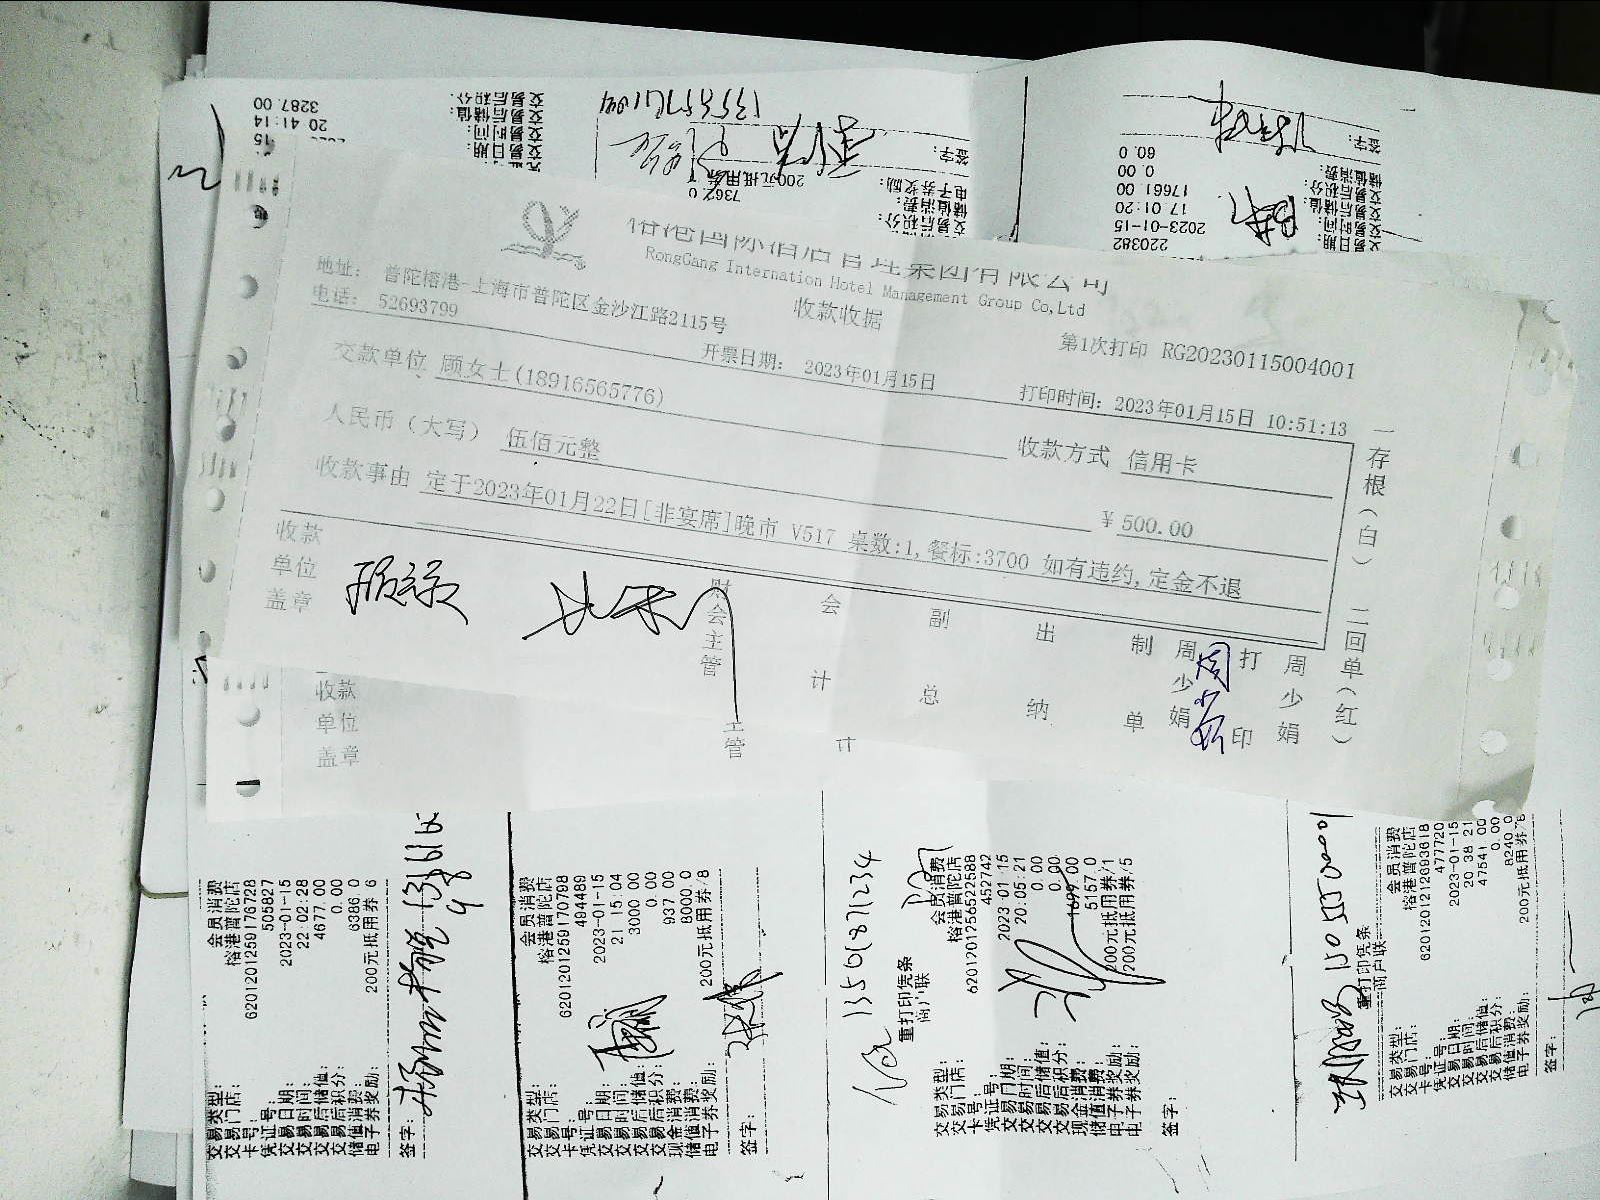 3287.00
20 41:14
交易后积分:
交易后储值:
交易时间:
13565721094
200元抵用券
736Z 0
签字:
电子券奖励:
储值消费:
交易后积分:
签字:
60.0
0.00
17661.00
17 01:20
2023-01-15
220382
储值消费:
交易后积分:
交易后储值:
交易时间:
交易日期:
榕港国际酒店管理集团有限公司
RongGang Internation Hotel Management Group Co,Ltd
地址: 普陀榕港-上海市普陀区金沙江路2115号
电话: 52693799
收款收据
第1次打印 RG20230115004001
开票日期: 2023年01月15日
打印时间: 2023年01月15日 10:51:13
交款单位 顾女士(18916565776)
收款方式 信用卡
人民币(大写) 伍佰元整
¥ 500.00
收款事由 定于2023年01月22日[非宴席]晚市 V517 桌数:1,餐标:3700 如有违约,定金不退
一存根(白) 二回单(红)
收款单位盖章
财会主管
会计
副总
出纳
制单
周少娟
周少娟
打印
周少娟
收款
单位
盖章
主管
计
会员消费
榕港普陀店
6201201259176728
505827
2023-01-15
22:02:28
4677.00
0.00
6386 0
200元抵用券 6
交易类型:
交易门店:
卡号:
凭证号:
交易日期:
交易时间:
交易后储值:
交易后积分:
储值消费:
电子券奖励:
签字:
会员消费
榕港普陀店
6201201259170798
494489
2023-01-15
21 15 04
3000 00
0.00
937 00
8000 0
200元抵用券/8
交易类型:
交易门店:
卡号:
凭证号:
交易日期:
交易时间:
交易后储值:
交易后积分:
现金消费:
储值消费:
电子券奖励:
签字:
13501871234
重打印凭条
商户联
会员消费
榕港普陀店
6201201256522588
452742
2023 01 15
20:05:21
0.00
0.00
1699 00
5157 0
200元抵用券/1
200元抵用券/5
交易类型:
交易门店:
卡号:
凭证号:
交易日期:
交易时间:
交易后储值:
交易后积分:
现金消费:
储值消费:
电子券奖励:
电子券奖励:
签字:
重打印凭条
商户联
会员消费
榕港普陀店
6201201212693618
477720
2023-01-15
20 38 21
47541 00
0.00
8240 0
200元抵用券/8
交易类型:
交易门店:
卡号:
凭证号:
交易日期:
交易时间:
交易后储值:
交易后积分:
储值消费:
电子券奖励:
签字: